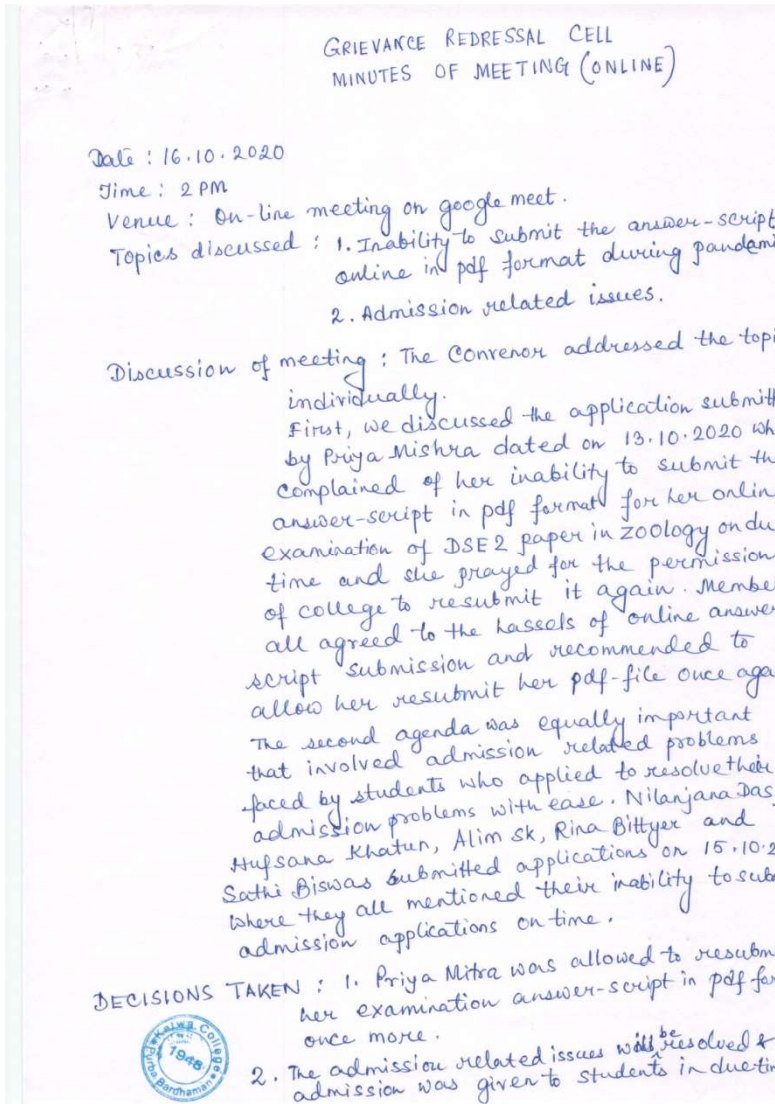 GRIEVANCE REDRESSAL CELL
MINUTES OF MEETING (ONLINE)
Date : 16.10.2020
Time : 2 PM
Venue : On-line meeting on google meet.
Topics discussed : 1. Inability to submit the answer-script
online in pdf format during pandemi
2. Admission related issues.
Discussion of meeting : The Convenor addressed the topi
individually.
First, we discussed the application submitt
by Priya Mishra dated on 13.10.2020 wh
complained of her inability to submit th
answer-script in pdf format for her onlin
examination of DSE2 paper in zoology on du
time and she prayed for the permission
of college to resubmit it again. Membe
all agreed to the hassels of online answer
script submission and recommended to
allow her resubmit her pdf-file once aga
The second agenda was equally important
that involved admission related problems
faced by students who applied to resolve their
admission problems with ease. Nilanjana Das
Hufsana Khatun, Alim Sk, Rina Bittyer and
Sathi Biswas submitted applications on 15.10.2
where they all mentioned their inability to sub
admission applications on time.
DECISIONS TAKEN : 1. Priya Mitra was allowed to resubm
her examination answer-script in pdf for
once more.
2. The admission related issues will be resolved &
admission was given to students in due tim
Kalna College
1948
Purba Bardhaman